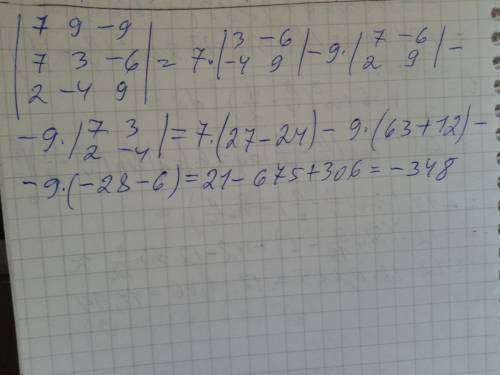 | 7 9 -9 |
| 7 3 -6 | = 7·| 3 -6 ; -4 9 | - 9·| 7 -6 ; 2 9 | -
| 2 -4 9 |
- 9·| 7 3 ; 2 -4 | = 7·(27-24) - 9·(63+12) -
- 9·(-28-6) = 21 - 675 + 306 = -348